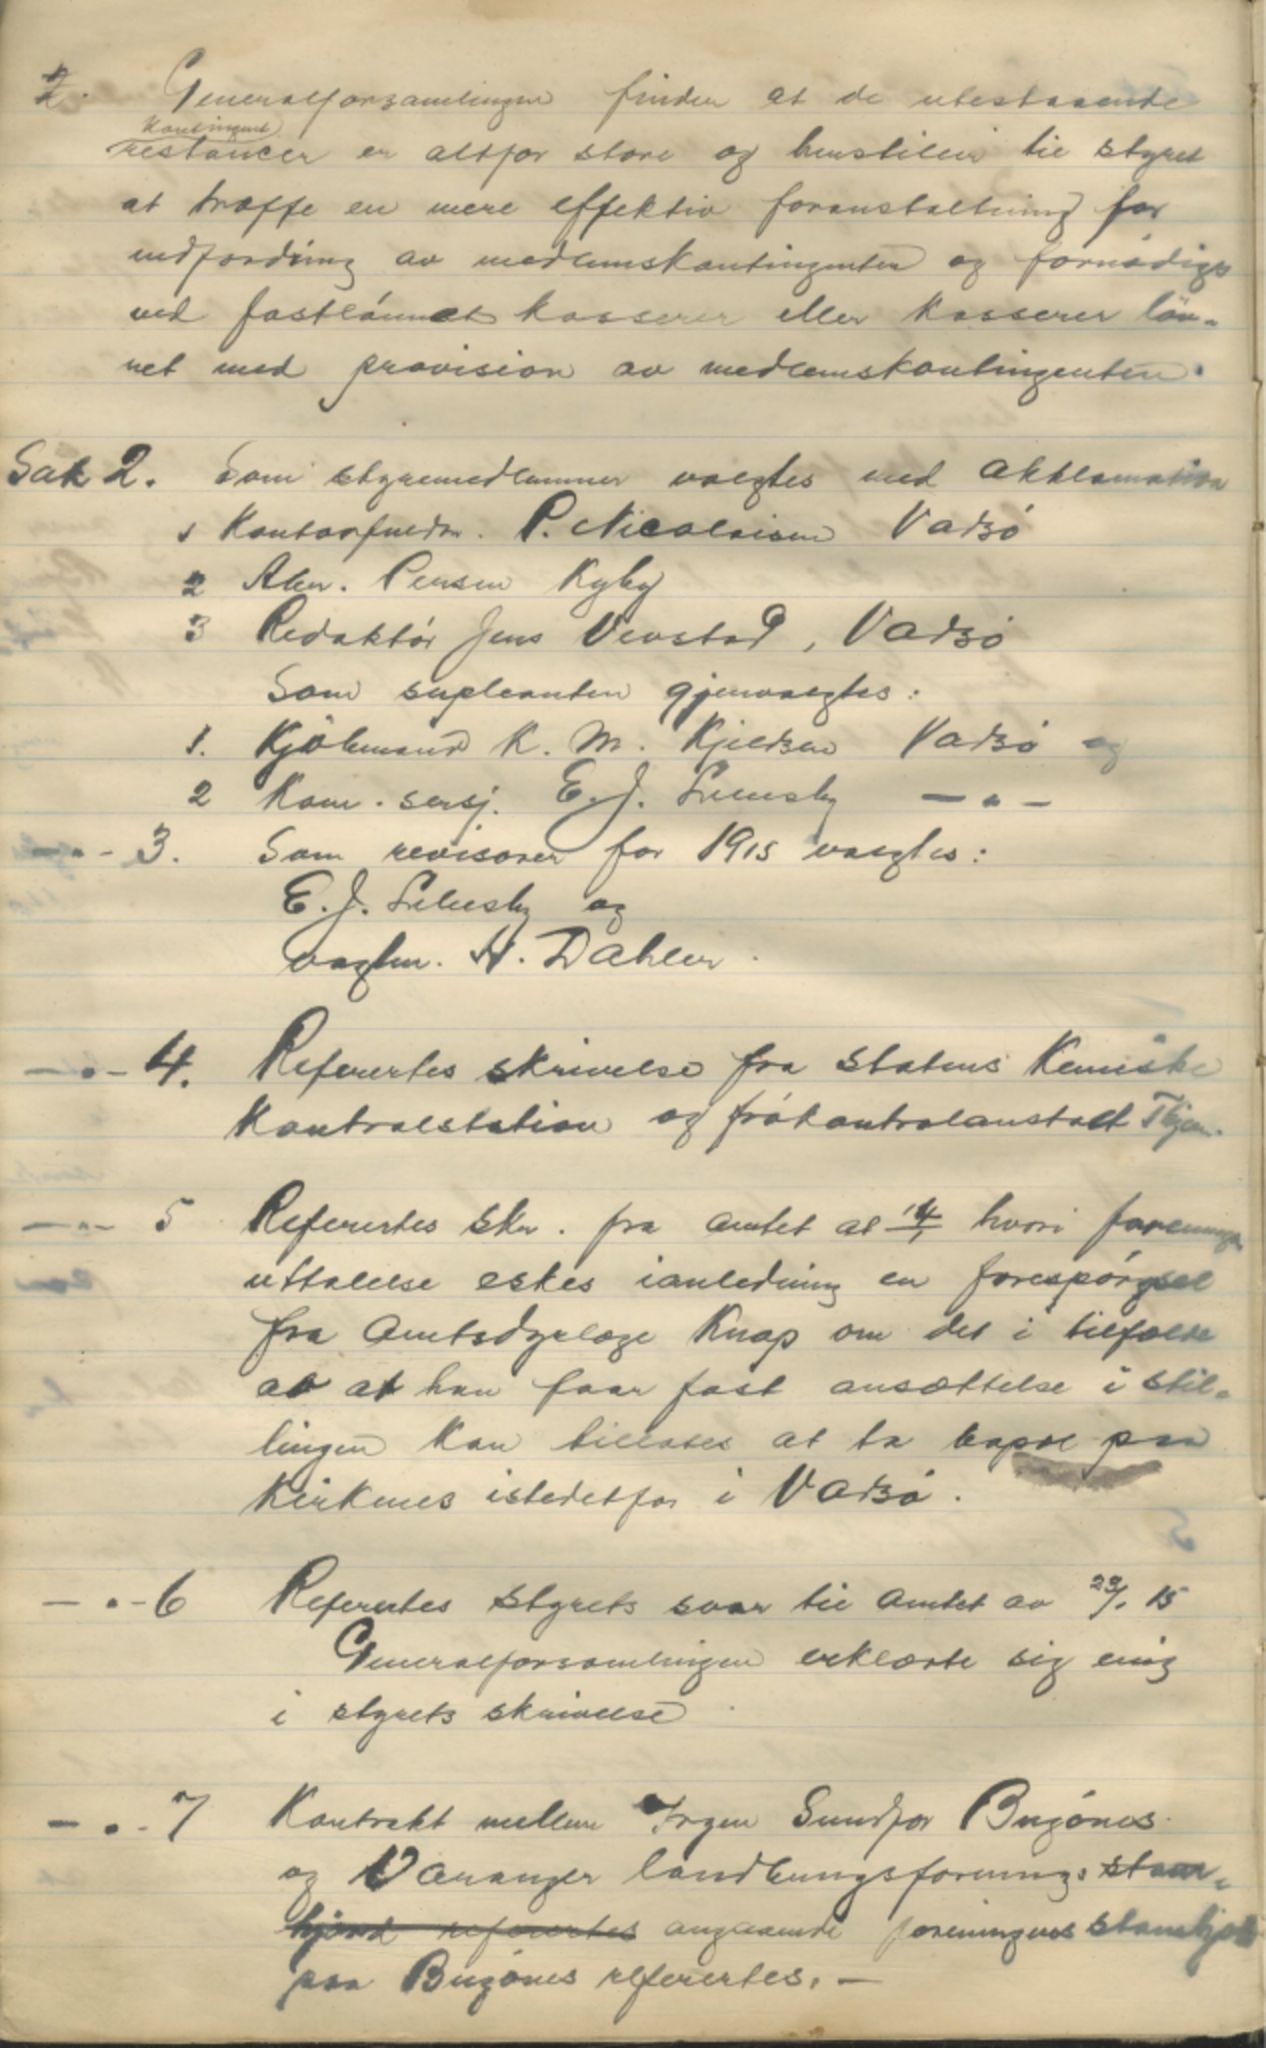 2. Generalforsamlingen finder at de utestaaende
kontingent
restancer er altfor store og henstiller til styret
at træffe en mere effektiv foranstaltning for
indfordring av medlemskontingenten og fornødigt
ved fastlønnet kasserer eller kasserer løn-
net med provision av medlemskontingenten.
Sak 2. Som styremedlemmer valgtes med akklamation
1 Kontorfuldm. P. Nicolaisen Vadsö
2 Alen. Pensen Kyby
3 Redaktør Jens Vevstad, Vadsö
Som supleanter gjenvalgtes:
1. Kjöbmand K. M. Kjeldsen Vadsö og
2 Kom. sersj. E. J. Lilleeby — " —
— " — 3. Som revisorer for 1915 valgtes:
E. J. Lilleeby og
vagtm. H. Dahler.
— " — 4. Refertes skrivelse fra statens Kemiske
Kontrolstation og frökontrolanstalt Thjem.
— " — 5 Refertes skr. fra amtet at 14/1 hvori foreningens
uttalelse eskes ianledning en forespørgsel
fra Amtsdyrlæge Knap om det i tilfælde
av at han faar fast ansættelse i stil-
lingen kan tillates at ta bopæl paa
Kirkenes istedetfor i Vadsö.
— " — 6 Refertes styrets svar til amtet av 29/1 15
Generalforsamlingen erklærte sig enig
i styrets skrivelse
— " — 7 Kontrakt mellem Irgen Sundfor Bugönes
og Varanger landbrugsforenings stam-
hjord refertes angaaende foreningens stamhjord
paa Bugönes refertes. —